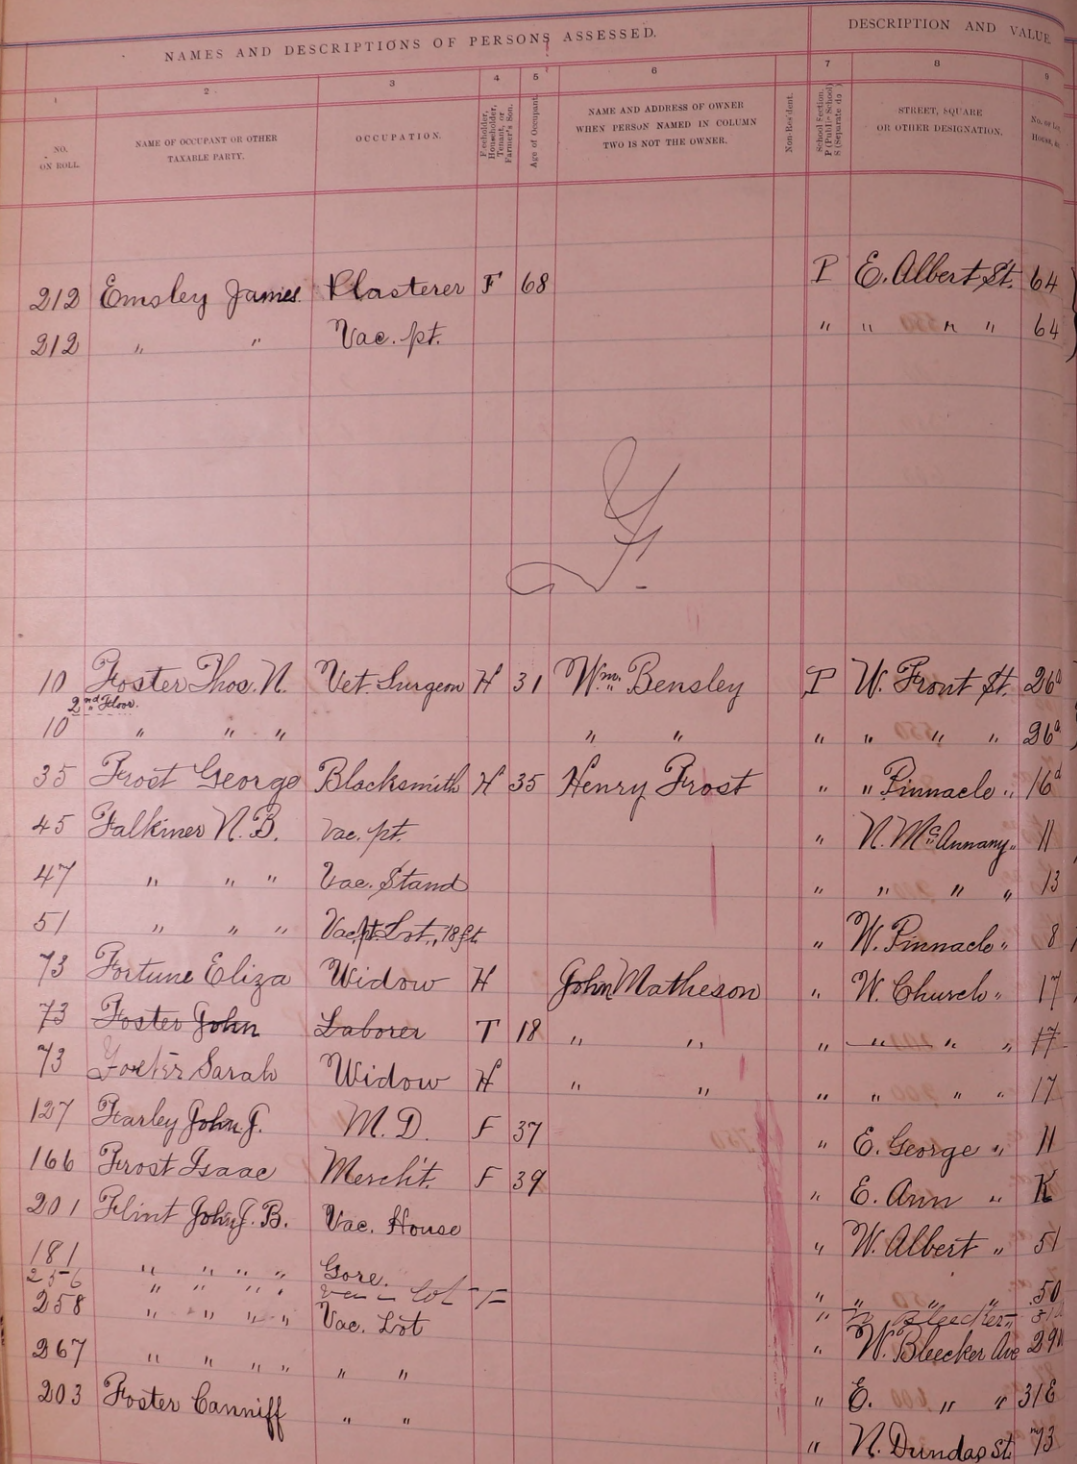 NAMES AND DESCRIPTIONS OF PERSONS ASSESSED. DESCRIPTION AND VALUE
1 2 3 4 5 6 7 8 9
NO. ON ROLL. NAME OF OCCUPANT OR OTHER TAXABLE PARTY. OCCUPATION. Freeholder, Householder, Tenant, or Farmer's Son. Age of Occupant. NAME AND ADDRESS OF OWNER WHEN PERSON NAMED IN COLUMN TWO IS NOT THE OWNER. Non-Resident. School Section. P (Public School) S (Separate do ) STREET, SQUARE OR OTHER DESIGNATION. No. of Lot, House, &c.
212 Emsley James Plasterer F 68 P E. Albert St. 64
212 " " Vac. pt. " " " " 64
F.
10 Foster Thos. N. Vet. Surgeon H 31 Wm. Bensley P W. Front St. 26a
2nd Floor.
10 " " " " " " " " " 26a
35 Frost George Blacksmith H 35 Henry Frost " " Pinnacle " 16d
45 Falkiner N. B. Vac. pt. " N. McAnnany " 11
47 " " " Vac. Stand " " " " 13
51 " " " Vac. pt. Lot., 18 ft " W. Pinnacle " 8
73 Fortune Eliza Widow H John Matheson " W. Church " 17
73 Foster John Laborer T 18 " " " " " " 17
73 Foster Sarah Widow H " " " " " " 17
127 Farley John J. M. D. F 37 " E. George " 11
166 Frost Isaac Mercht. F 39 " E. Ann " K
201 Flint John J. B. Vac. House " W. Albert " 51
181 " " " " Gore. " " " " 50
256 " " " " Lot " Bleecker "
258 " " " " Vac. Lot " W. Bleecker Ave 29
267 " " " " " " " E. " " 31E
203 Foster Canniff " " " N. Dundas St. 73